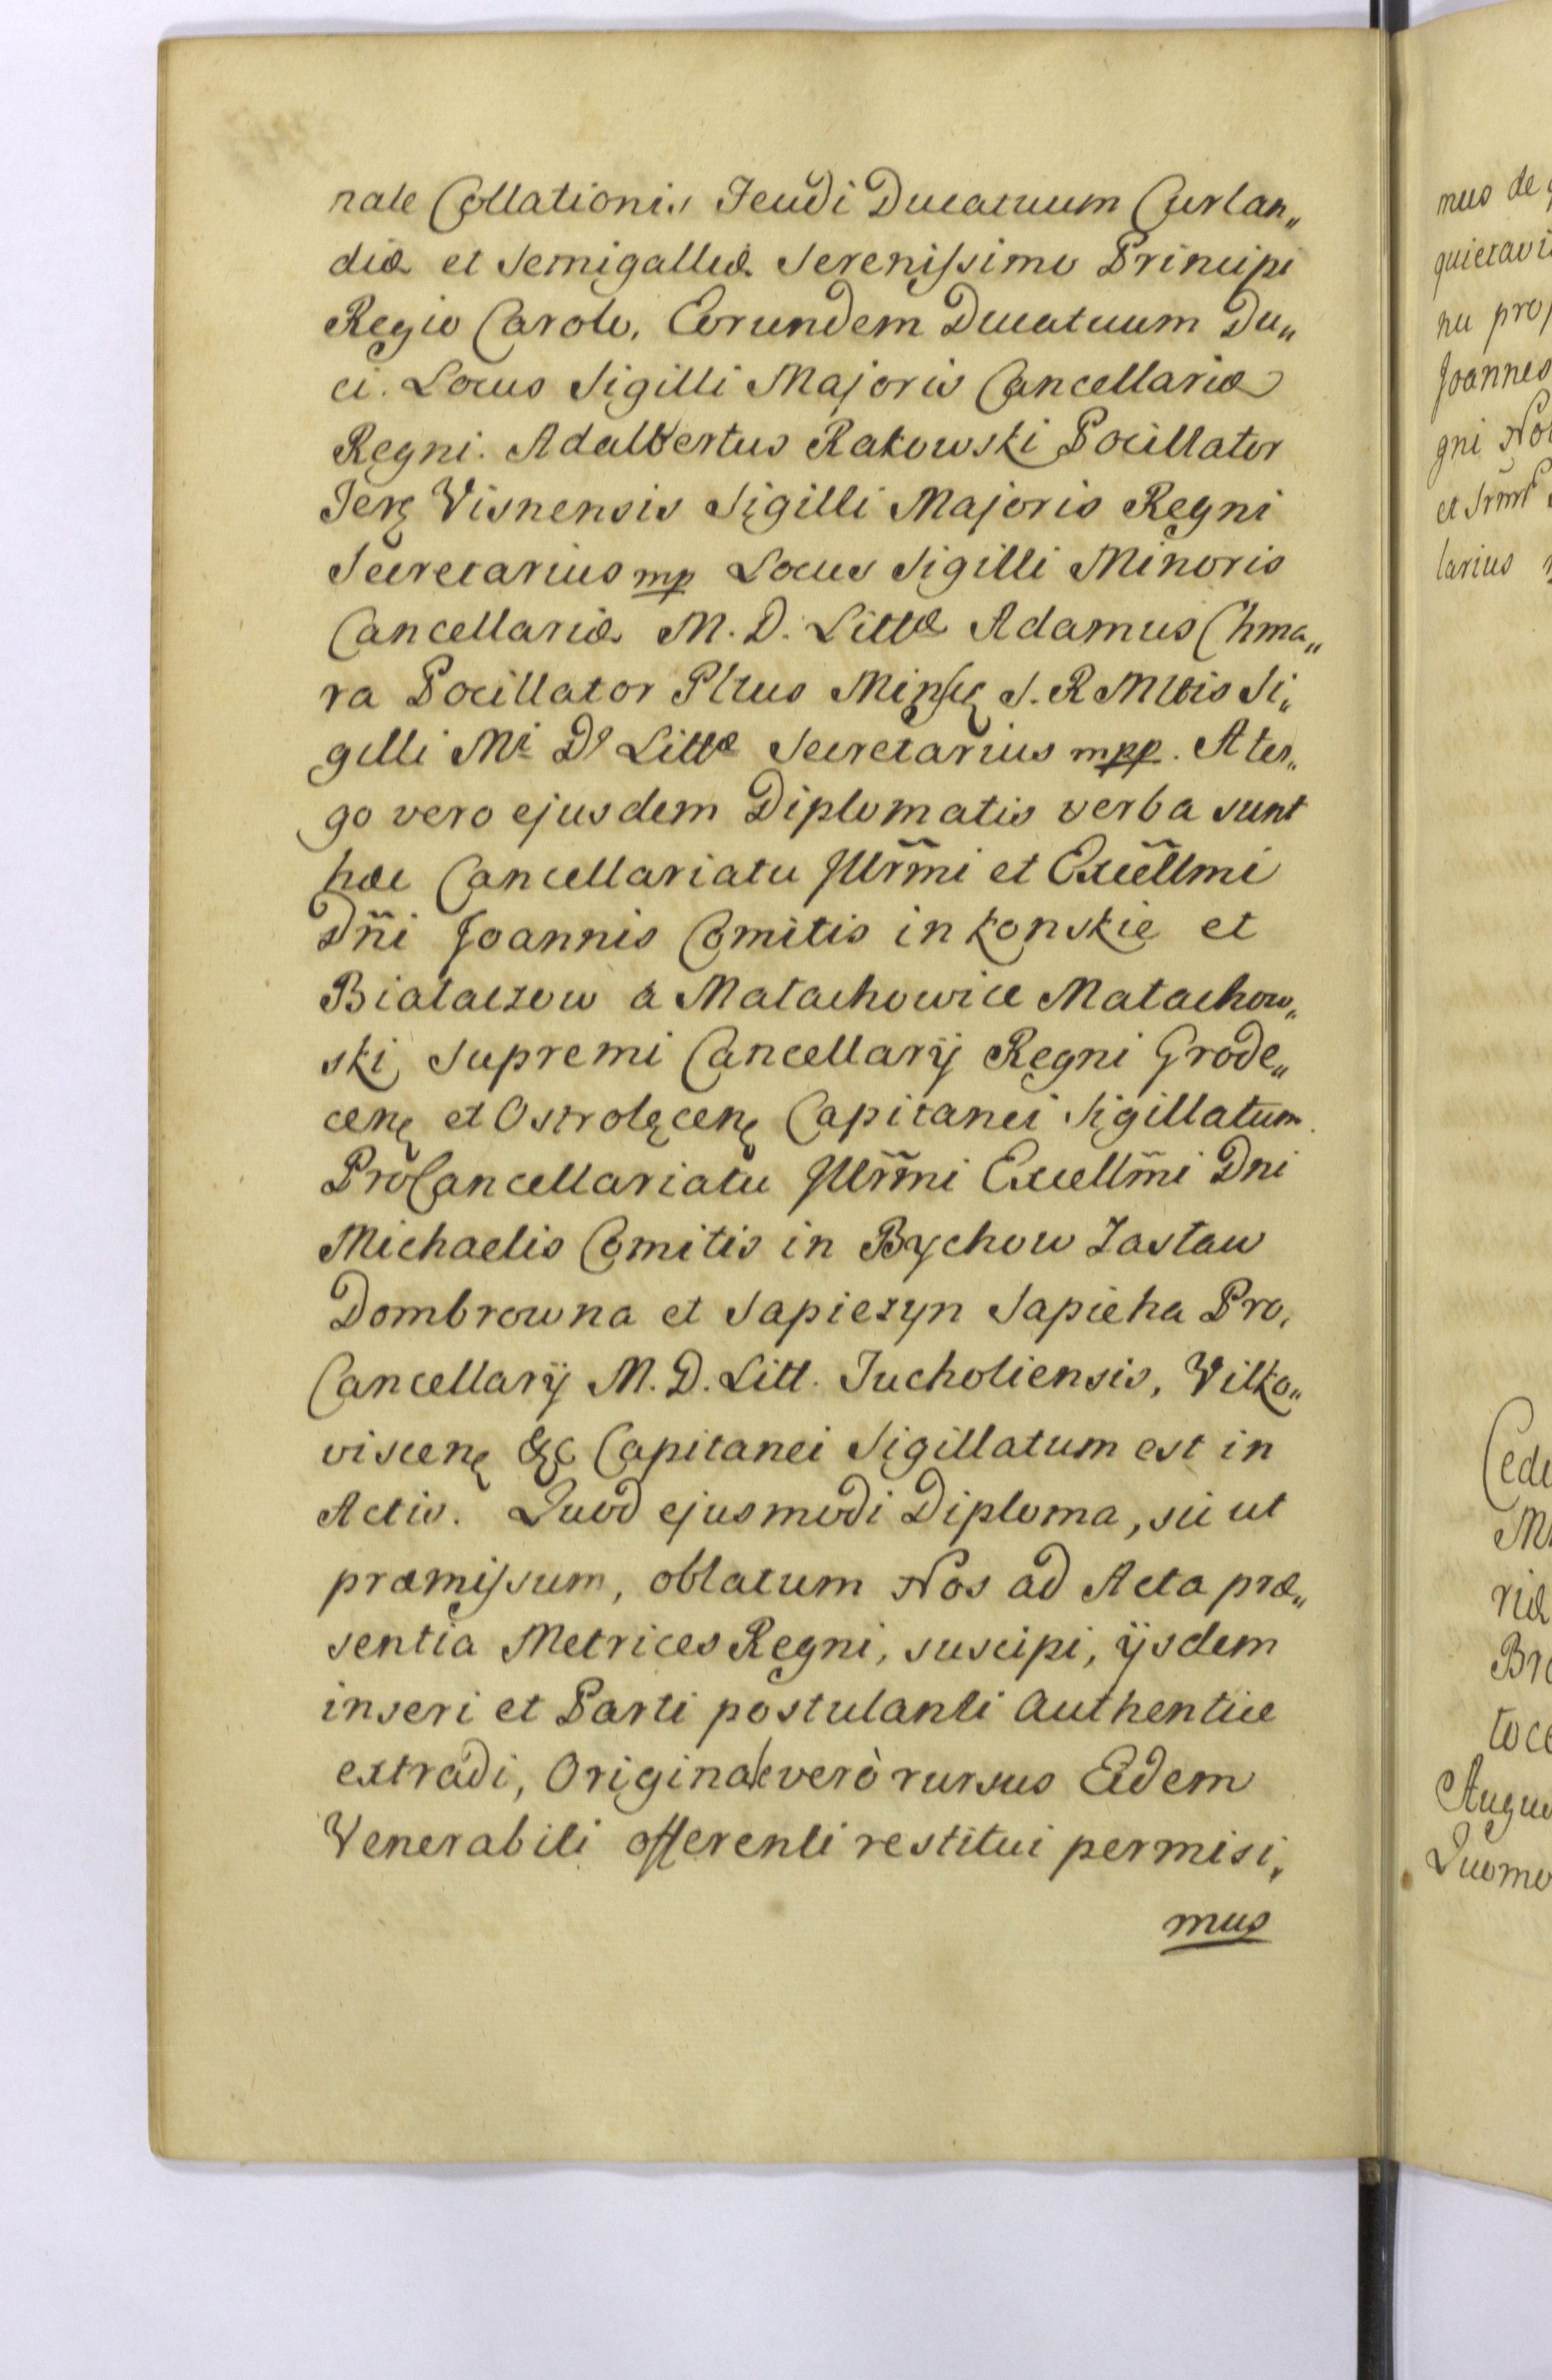 nale Collationis Feudi Ducatuum Curlan„
diæ et Semigalliæ Serenissimo Principi
Regio Carolo, Eorundem Ducatuum Du„
ci. Locus Sigilli Majoris Cancellariæ
Regni. Adalbertus Rakowski Pocillator
Terę Visnensis Sigilli Majoris Regni
Secretarius mp Locus Sigilli Minoris
Cancellariæ M. D. Littæ Adamus Chma„
ra Pocillator Pltus Minsę S. R Mttis Si„
gilli Mi Ds Littæ Secretarius mpp. A ter„
go vero ejusdem Diplomatis verba sunt
hæc Cancellariatu Illr̃mi et Excell̃mi
Dñi Joannis Comitis in Konskie et
Białaczow a Małachowice Małachow„
ski, Supremi Cancellarij Regni Grode„
cenę et Ostrolęcenę Capitanei Sigillatum.
ProCancellariatu Illr̃mi Excellm̃i Dni
Michaelis Comitis in Bychow Zasław
Dombrowna et Sapiezyn Sapieha Pro,
Cancellarij M. D. Litt. Tucholiensis, Vilko„
viscenę &c Capitanei Sigillatum est in
Actis. Quod ejusmodi Diploma, sic ut
præmissum, oblatum Nos ad Acta præ„
sentia Metrices Regni, suscipi, ijsdem
inseri et Parti postulanti authentice
extradi, Originale verò rursus Eidem
Venerabili offerenti restitui permisi„
mus
mus de
quietavi
nu prop
Joannes
gni No
et Srmę
larius
Cedu
M
riæ
Bre
toce
Augu
Quomo